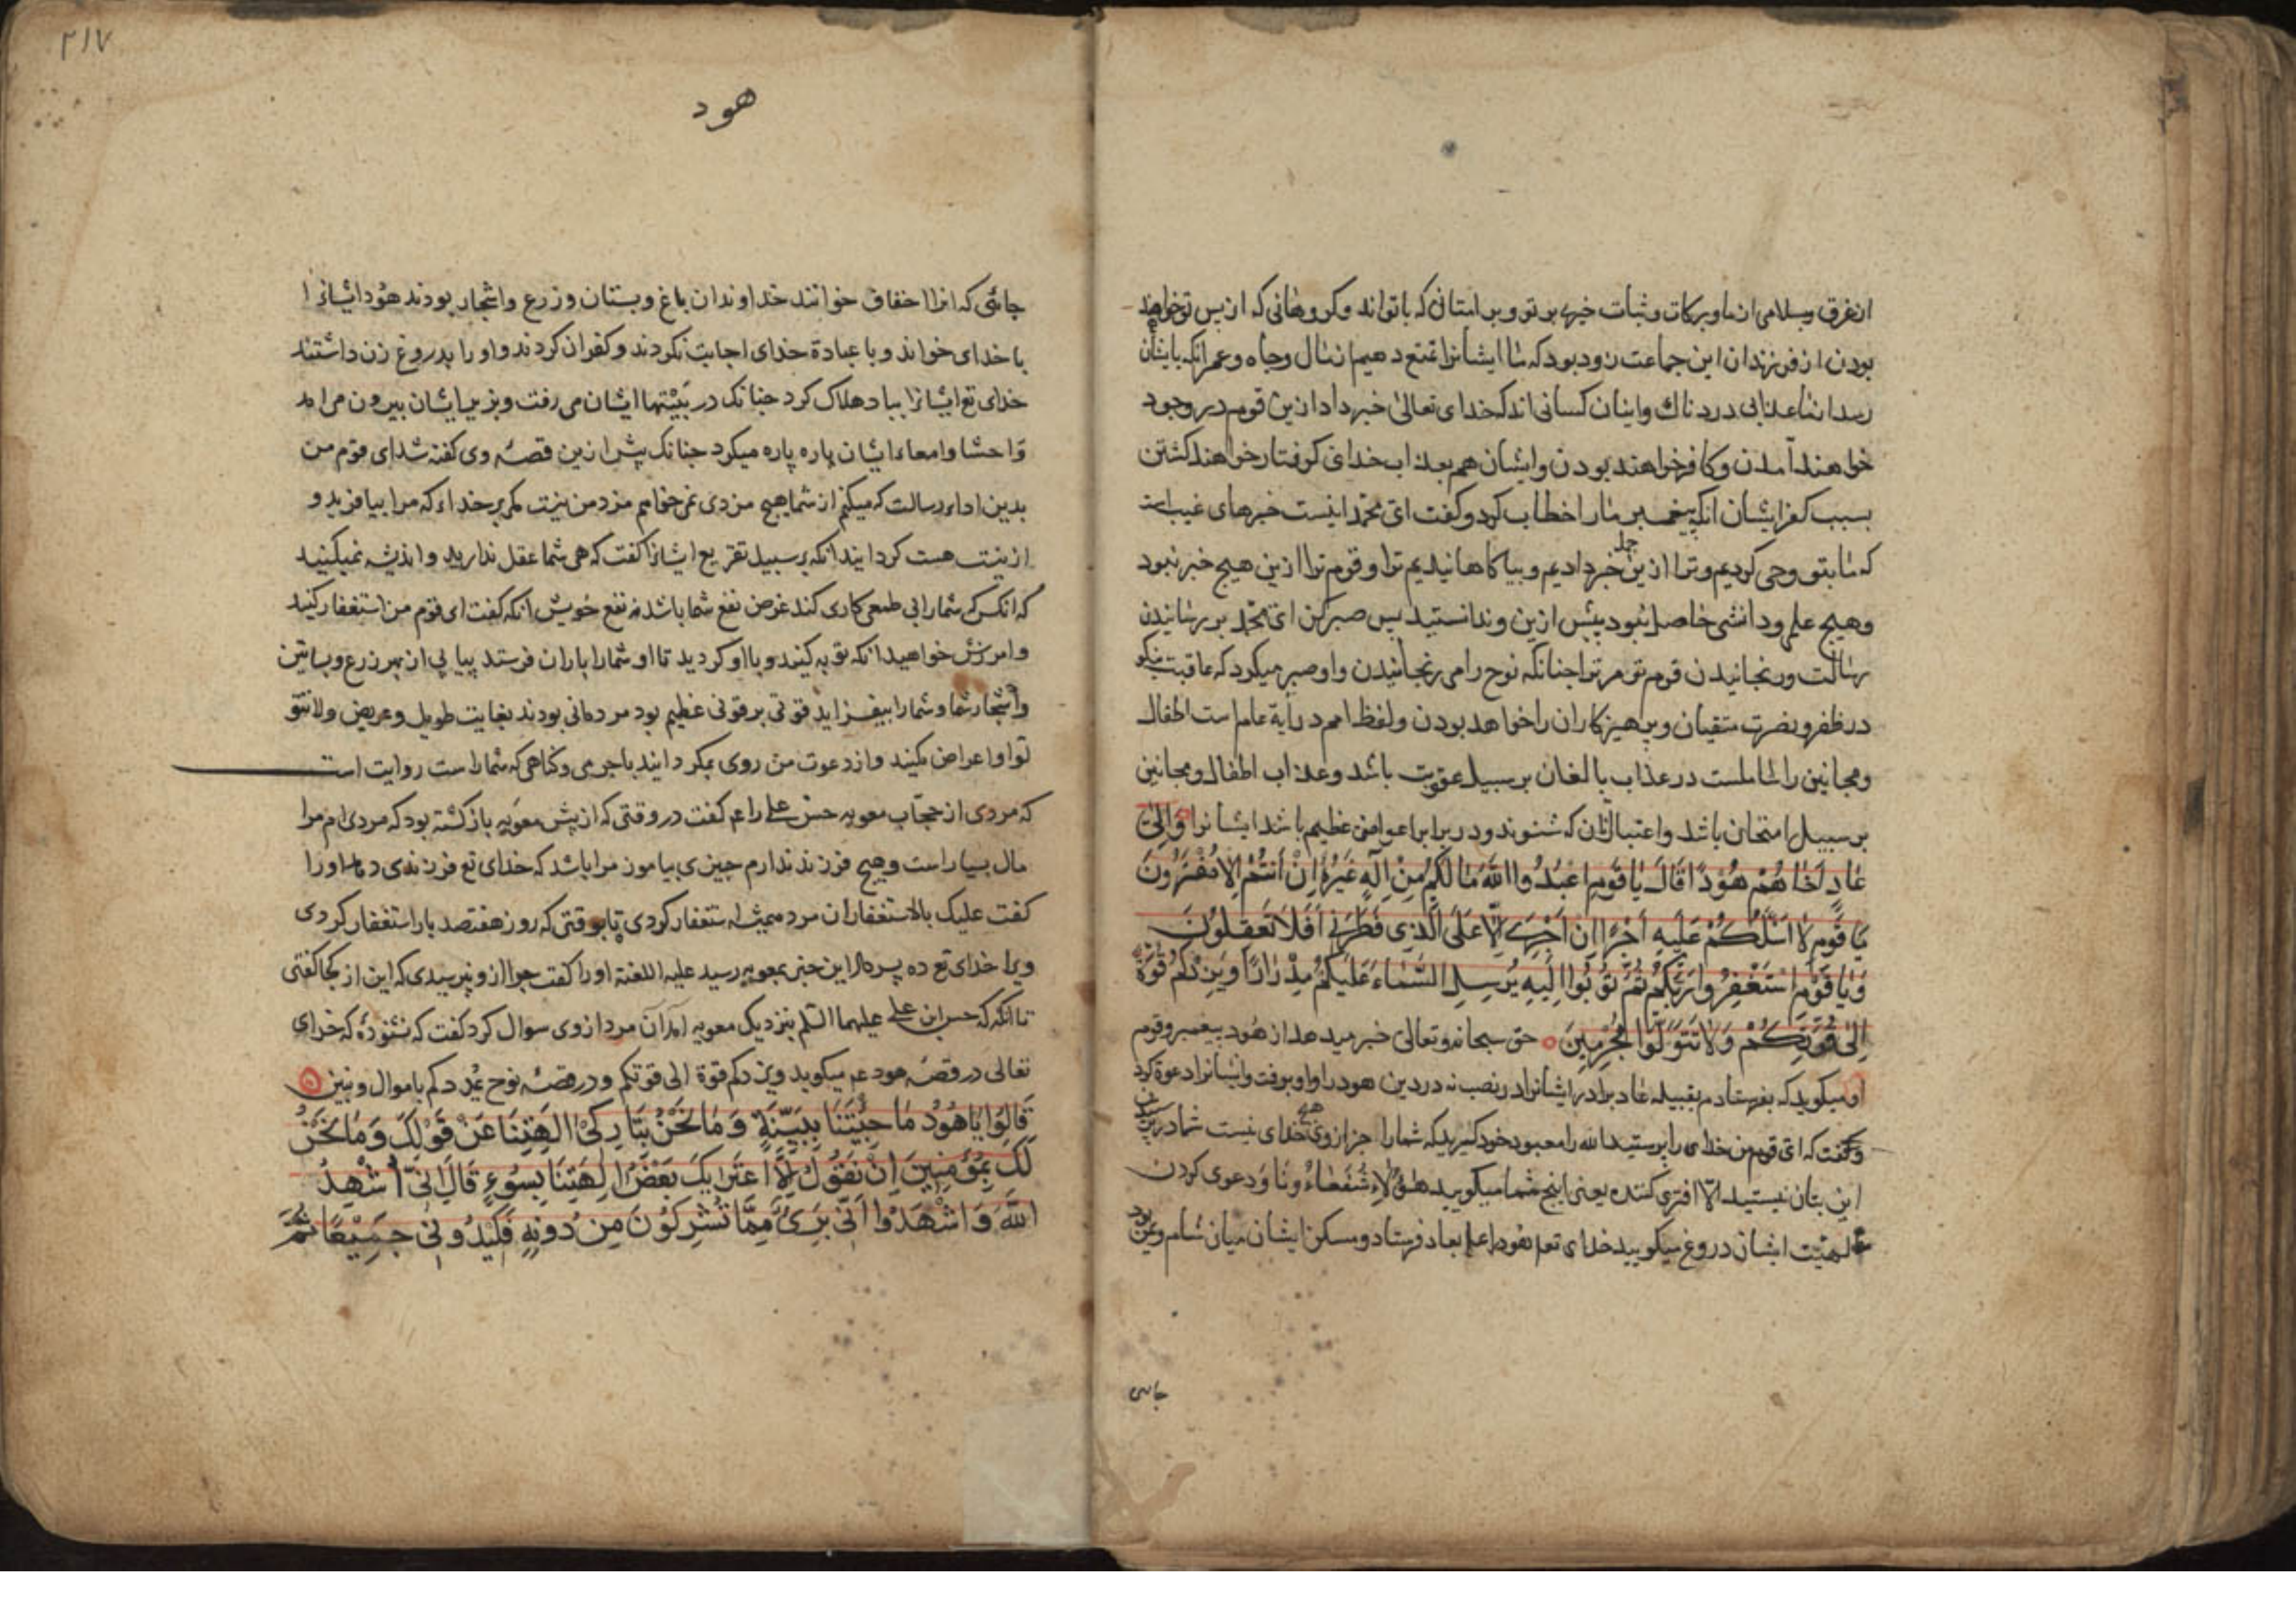 از غرق و بسلامی از ما و برکات و ثبات خیر بر تو و بر امتانی که با تواند و کروهانی که از پس تو خواهند
بودن از فرزندان این جماعت زود بود که ما ایشانرا تمتع دهیم از مال و جاه و عمر انکه بایشان
رسد از ما عذابی دردناک و اینان کسانی اند که خدای تعالی خبر داد ازین قوم در وجود
خواهند آمدن و کافر خواهند بودن و ایشان هم بعذاب خدای کرفتار خواهند کشتن
بسبب کفر ایشان انکه پیغمبر ما را خطاب کرد و کفت ای محمد اینست خبرهای غیب است
که ما بتو وحی کردیم و ترا ازین جمله خبر دادیم و بیاکاهانیدیم ترا و قوم ترا ازین هیچ خبر نبود
و هیچ علم و دانشی حاصل نبود پیش ازین و ندانستید پس صبر کن ای محمد بر رسانیدن
رسالت و رنجانیدن قوم تو مر ترا جنانکه نوح را می رنجانیدن و او صبر میکرد که عاقبت نیکو
در ظفر و نصرت متقیان و پرهیزکاران را خواهد بودن و لفظ امم در آیة عام است اطفال
و مجانین را شاملست در عذاب بالغان بر سبیل عقوبت باشد و عذاب اطفال و مجانین
بر سبیل امتحان باشد و اعتبار آنان که شنوند و در برابر اعواض عظیم باشد ایشانرا وَاِلیٰ
عَادٍ اَخَاهُمْ هُوْدًا قَالَ یَا قَومِ اعْبُدُوا اللهَ مَا لَکُمْ مِنْ اِلَهٍ غَیْرُهُ اِنْ اَنتُمْ اِلَّا مُفْتَرُونَ
یَا قَومِ لَا اَسْئَلُکُمْ عَلَیهِ اَجْرًا اِن اَجْرِیَ اِلّا عَلَی الَّذِی فَطَرَنِی اَفَلَا تَعْقِلُونَ
وَیَا قَوْمِ اسْتَغْفِرُوا رَبَّکُمْ ثُمَّ تُوبُوا اِلَیهِ یُرْسِلِ السَّمَاءَ عَلَیکُمْ مِدْرَارًا وَیَزِدْکُمْ قُوَّةً
اِلیٰ قُوَّتِکُمْ وَلَا تَتَوَلَّوا مُجْرِمِینَ حق سبحانه و تعالی خبر میدهد از هود پیغمبر و قوم
او میکوید که بفرستادم بقبیله عاد برادر ایشانرا در نصب نه در دین هود را و او برفت و ایشانرا دعوة کرد
و کفت که ای قوم من خدای را بپرستید الله را معبود خود کیرید که شما را جز از وی هیچ خدای نیست شما در پرستیدن
این بتان نیستید الّا افتری کننده یعنی اینچ شما میکویید هٰؤُلَاءِ شُفَعَاؤُنَا و دعوی کردن
الهیّت ایشان دروغ میکویید خدای تع هود را علم بعاد فرستاد و مسکن ایشان میان شام و یمن بود
جائی
۲۱۷
هود
جائی که انرا احقاف خوانند خداوندان باغ و بستان و زرع و اشجار بودند هود ایشانرا
با خدای خواند و با عبادة خدای اجابت نکردند و کفران کردند و او را بدروغ زن داشتند
خدای تع ایشانرا بباد هلاک کرد جنانک در بینیها ایشان می رفت و بزیر ایشان بیرون می امد
و احشا و امعاء ایشان پاره پاره میکرد جنانک پیش ازین قصه وی کفته شد ای قوم من
بدین اداء رسالت که میکنم از شما هیچ مزدی نمی خواهم مزد من نیست مکر بر خداء که مرا بیافرید و
از نیست هست کردانید انکه بر سبیل تقریع ایشانرا کفت که هی شما عقل ندارید و اندیشه نمیکنید
که انکس که شما را بی طمعی کاری کند غرض نفع شما باشد نه نفع خویش انکه کفت ای قوم من استغفار کنید
و امرزش خواهید انکه توبه کنید و با او کردید تا او شما را باران فرستد پیاپی از بهر زرع و بساتین
و اشجار شما و شما را بیفزاید قوتی بر قوتی عظیم بود مردمانی بودند بغایت طویل و عریض ولا تتو
لوا و اعراض مکنید و از دعوت من روی بمکردانید با جرمی و کناهی که شما راست روایت است
که مردی از حجّاب معویه حسن علی را عم کفت در وقتی که از پیش معویه بازکشته بود که مردی ام مرا
مال بسیار است و هیچ فرزند ندارم چیزی بیاموز مرا باشد که خدای تع فرزندی دهد او را
کفت علیک بالاستغفار ان مرد همیشه استغفار کردی تا بوقتی که روز هفتصد بار استغفار کردی
ویرا خدای تع ده پسر داد این خبر بمعویه رسید علیه اللعنة او را کفت چرا ازو نپرسیدی که این از کجا کفتی
تا انکه که حسن ابن علی علیهما السلم بنزدیک معویه آمد آن مرد از وی سوال کرد کفت که نشنودهٔ که خدای
تعالی در قصّه هود عم میکوید ویزدکم قوة الی قوتکم و در قصّه نوح یمددکم باموال و بنین
قَالُوا یَا هُوْدُ مَا جِئْتَنَا بِبَیِّنَةٍ وَمَا نَحْنُ بِتَارِکِیْ اٰلِهَتِنَا عَنْ قَوْلِکَ وَمَا نَحْنُ
لَکَ بِمُؤْمِنِینَ اِنْ نَقُولُ اِلَّا اعْتَرَیٰکَ بَعْضُ اٰلِهَتِنَا بِسُوْءٍ قَالَ اِنِّی اُشْهِدُ
اللهَ وَاشْهَدُوا اَنِّی بَرِیٌٔ مِمَّا تُشْرِکُونَ مِن دُونِهِ فَکِیْدُونِی جَمِیْعًا ثُمَّ